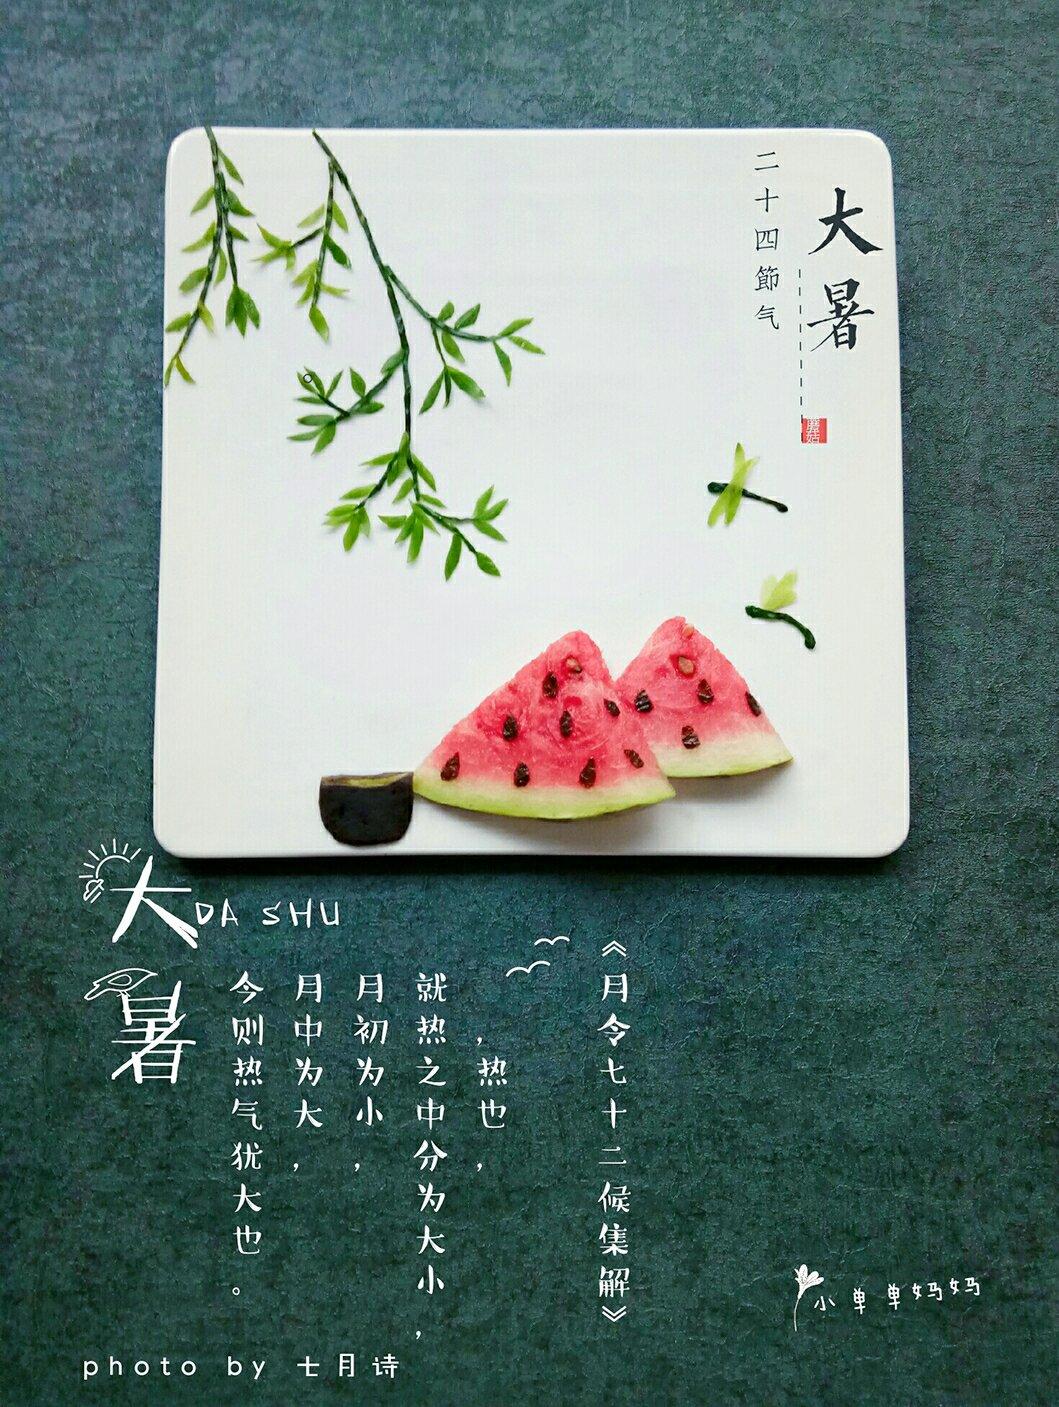 大暑
二十四節气
蘑菇
大暑
DA SHU
《月令七十二候集解》
，热也，
就热之中分为大小，
月初为小，
月中为大，
今则热气犹大也。
小单单妈妈
photo by 七月诗